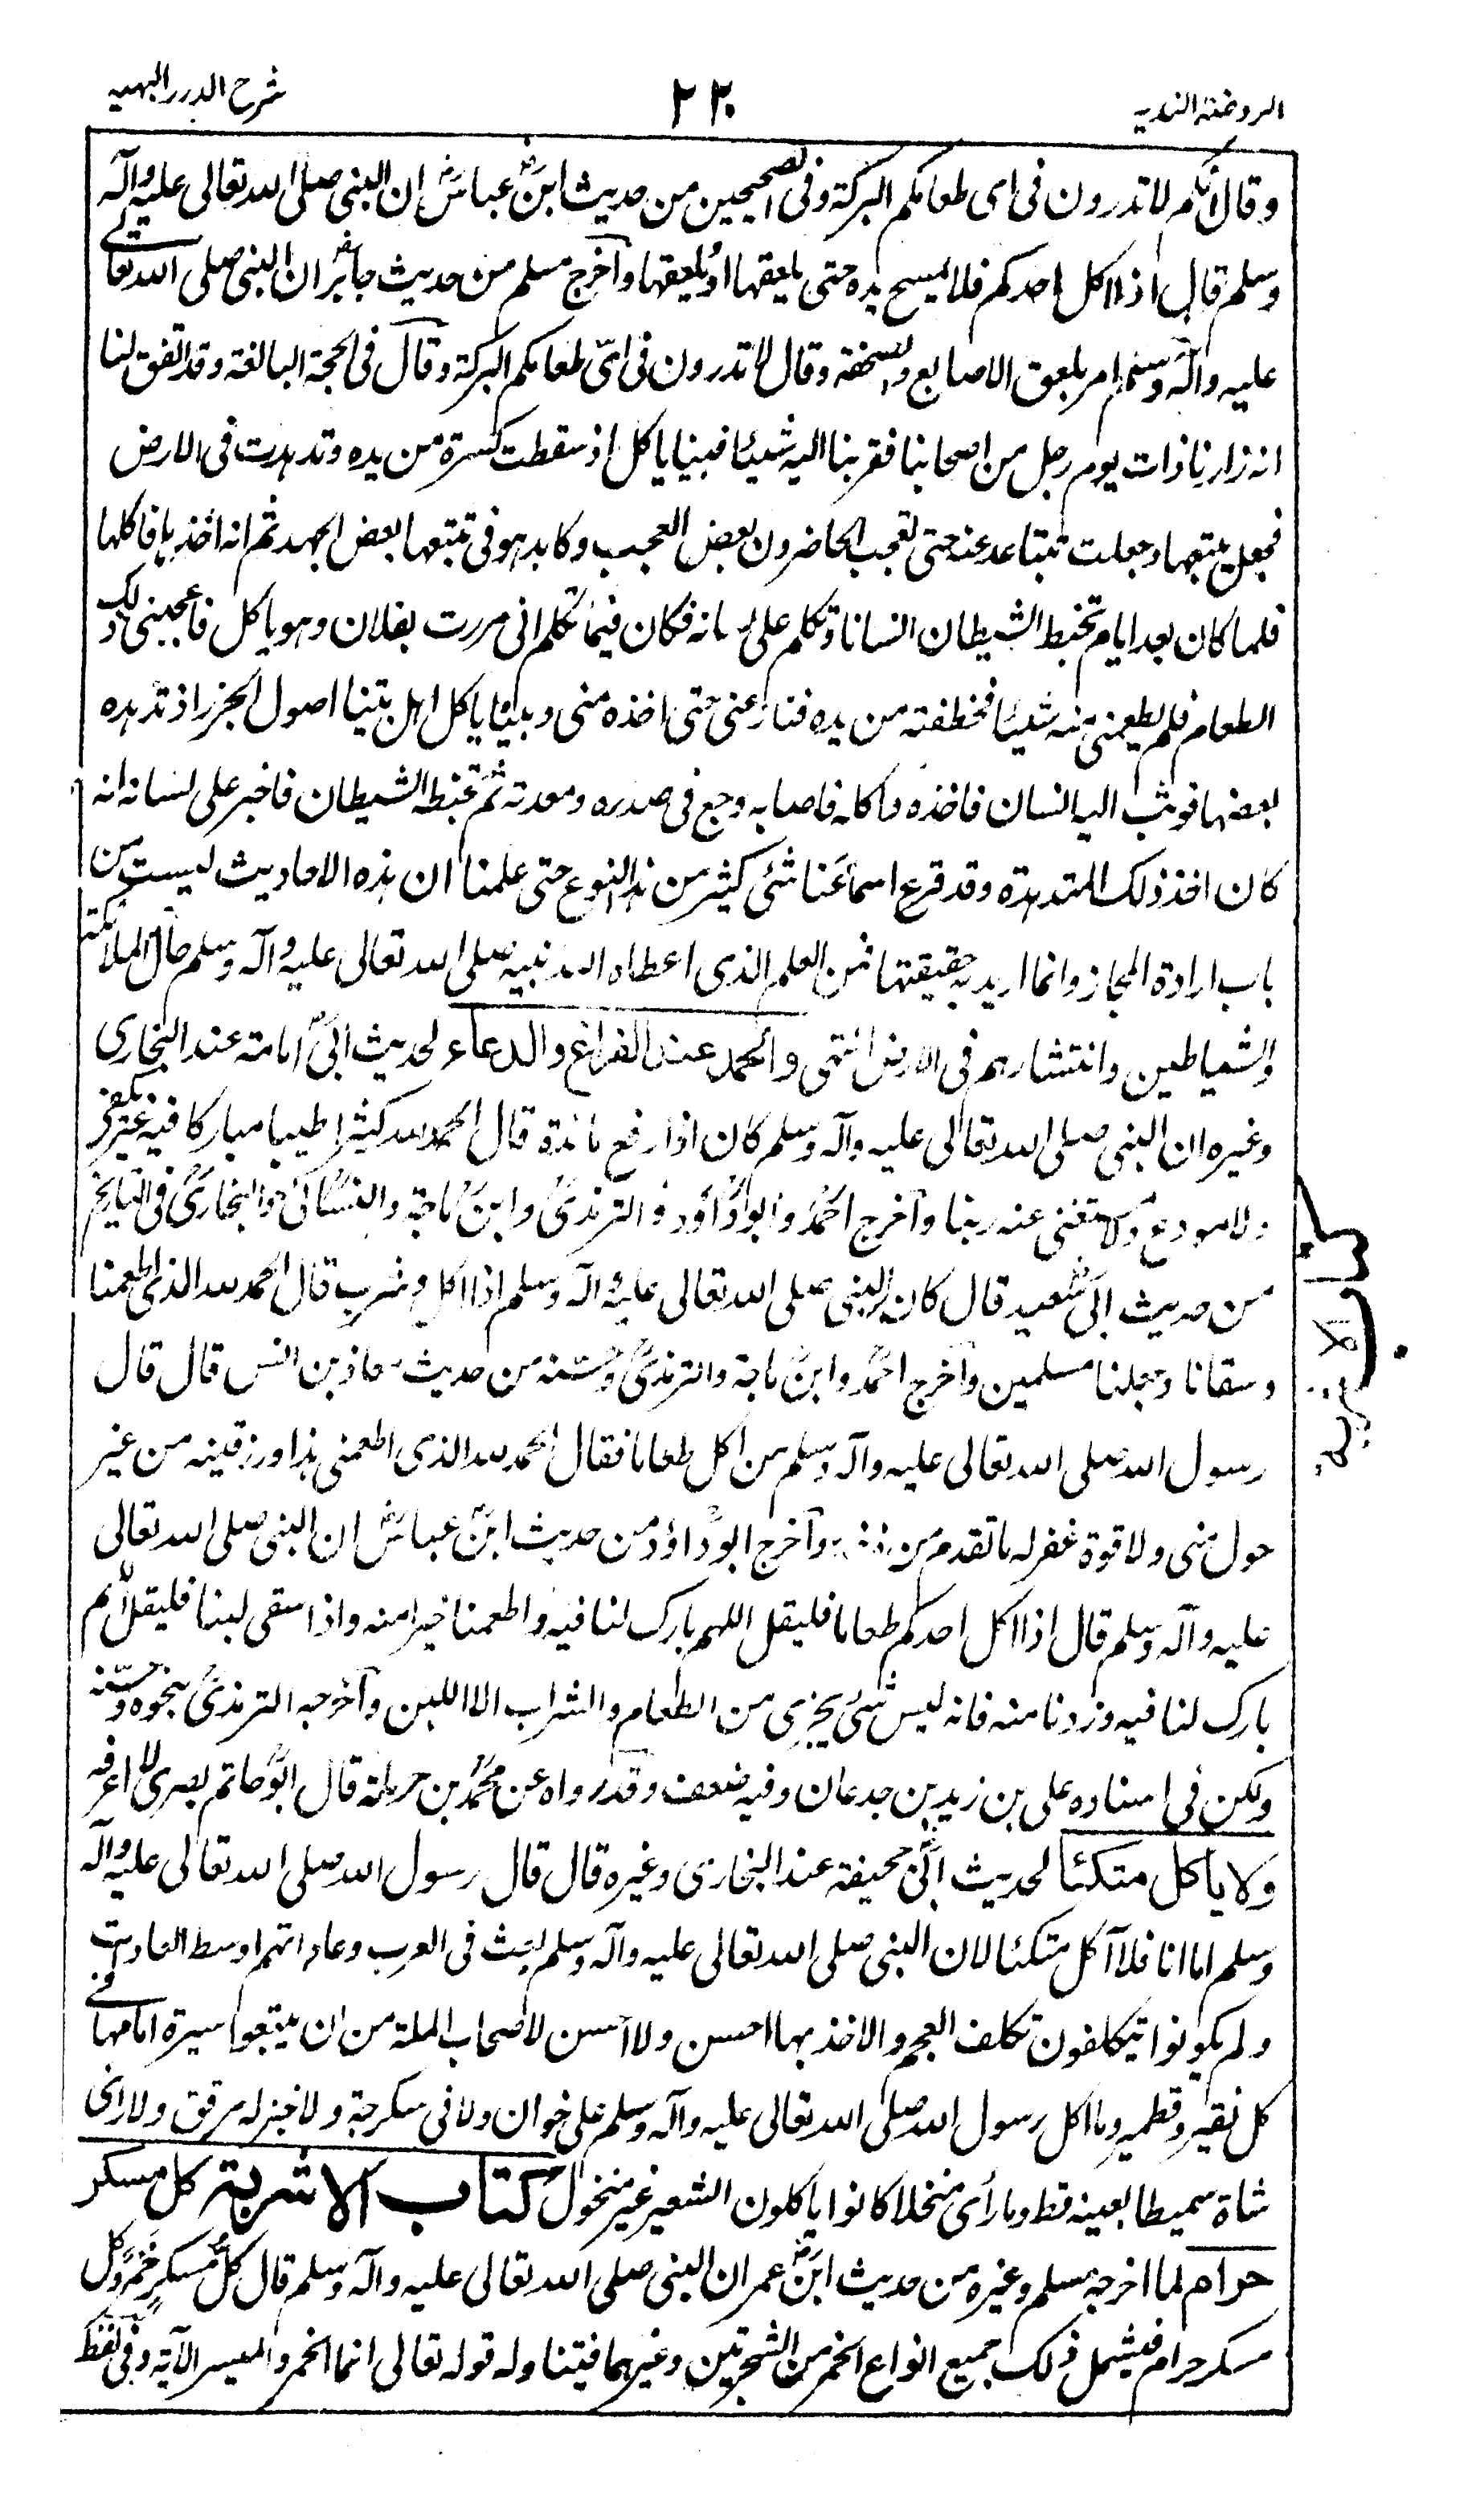 الروضة الندیه
۲۲۰
شرح الدرر البهیه
وقال انکم لا تدرون فی ای طعامکم البرکة وفی الصحیحین من حدیث ابن عباس ان النبی صلی الله تعالی علیه وآله
وسلم قال اذا اکل احدکم فلا یمسح یده حتی یلعقها او یلعقها وآخرج مسلم من حدیث جابر ان النبی صلی الله تعالے
علیه وآله وسلم امر بلعق الاصابع والصحفة وقال لا تدرون فی ایّ طعامکم البرکة وقال فی الحجة البالغة وقد اتفق لنا
انه زارنا ذات یوم رجل من اصحابنا فقربنا الیه شیئا فبینا یاکل اذ سقطت کسرة من یده وتدهدت فی الارض
فجعل یتبعها وجعلت تتباعد عنه حتی تعجب الحاضرون بعض العجب وکابد هو فی تتبعها بعض الجهد ثم انه اخذها فاکلها
فلما کان بعد ایام تخبط الشیطان انسانا وتکلم علی لسانه فکان فیما تکلم انی مررت بفلان وهو یاکل فاعجبنی ذلک
الطعام فلم یطعمنی منه شیئا فخطفته من یده فنازعنی حتی اخذه منی وبینا یاکل اهل بیتنا اصول الجزر اذ تدهده
بعضها فوثب الیه انسان فاخذه واکله فاصابه وجع فی صدره ومعدته ثم تخبطه الشیطان فاخبر علی لسانه انه
کان اخذ ذلک المتدهده وقد قرع اسماعنا شئی کثیر من هذا النوع حتی علمنا ان هذه الاحادیث لیست من
باب ارادة المجاز وانما ارید به حقیقتها فمن العلم الذی اعطاه الله نبیه صلی الله تعالی علیه وآله وسلم حال الملائکة
والشیاطین وانتشارهم فی الارض انتهی والحمد عند الفراغ والدعاء لحدیث ابی امامة عند البخاری
وغیره ان النبی صلی الله تعالی علیه وآله وسلم کان اذا رفع مائدته قال الحمد لله کثیرا طیبا مبارکا فیه غیر مکفی
ولا مودع ولا مستغنی عنه ربنا وآخرج احمد وابو داؤد والترمذی وابن ماجة والنسائی والبخاری فی التاریخ
من حدیث ابی سعید قال کان النبی صلی الله تعالی علیه وآله وسلم اذا اکل وشرب قال الحمد لله الذی اطعمنا
وسقانا وجعلنا مسلمین وآخرج احمد وابن ماجة والترمذی وحسنه من حدیث معاذ بن انس قال قال
رسول الله صلی الله تعالی علیه وآله وسلم من اکل طعاما فقال الحمد لله الذی اطعمنی هذا ورزقنیه من غیر
حول منی ولا قوة غفر له ما تقدم من ذنبه وآخرج ابو داؤد من حدیث ابن عباس ان النبی صلی الله تعالی
علیه وآله وسلم قال اذا اکل احدکم طعاما فلیقل اللهم بارک لنا فیه واطعمنا خیرا منه واذا سقی لبنا فلیقل اللهم
بارک لنا فیه وزدنا منه فانه لیس شئ یجزی من الطعام والشراب الا اللبن وآخرجه الترمذی بنحوه وحسّنه
ولکن فی اسناده علی بن زید بن جدعان وفیه ضعف وقد رواه عن محمد بن حرملة قال ابو حاتم بصری لا اعرفه
ولا یاکل متکئا لحدیث ابی جحیفة عند البخاری وغیره قال قال رسول الله صلی الله تعالی علیه وآله
وسلم اما انا فلا آکل متکئا لان النبی صلی الله تعالی علیه وآله وسلم بعث فی العرب وعاداتهم اوسط العادات
ولم یکونوا یتکلفون تکلف العجم والاخذ بها احسن ولا احسن لاصحاب الملة من ان یتبعوا سیرة امامها فے
کل نقیر وقطمیر وما اکل رسول الله صلی الله تعالی علیه وآله وسلم علی خوان ولا فی سکرجة ولا خبز له مرقق ولا رای
شاة سمیطا بعینه قط وما رأی منخلا کانوا یاکلون الشعیر غیر منخول کتاب الاشربة کل مسکر
حرام لما اخرجه مسلم وغیره من حدیث ابن عمر ان النبی صلی الله تعالی علیه وآله وسلم قال کل مسکر خمر وکل
مسکر حرام فیشمل ذلک جمیع انواع الخمر من الشجرتین وغیرهما فیتناوله قوله تعالی انما الخمر والمیسر الآیة وفی لفظ